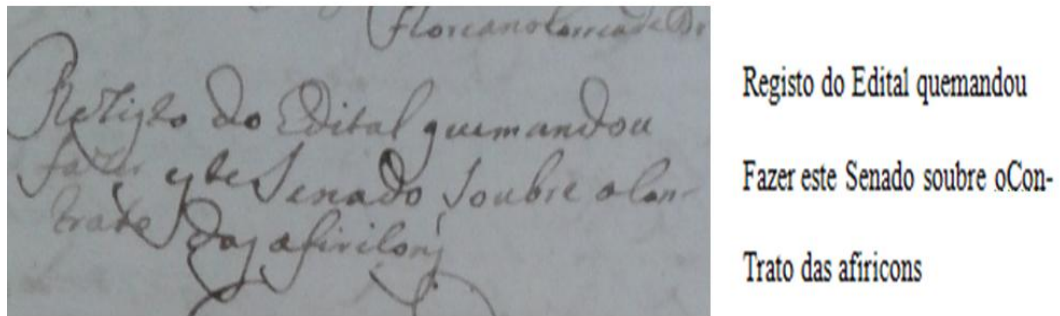 Floriano Correa de Br
Registo do Edital quemandou
fazer este Senado soubre oCon-
trato das afiricons
Registo do Edital quemandou
Fazer este Senado soubre oCon-
Trato das afiricons